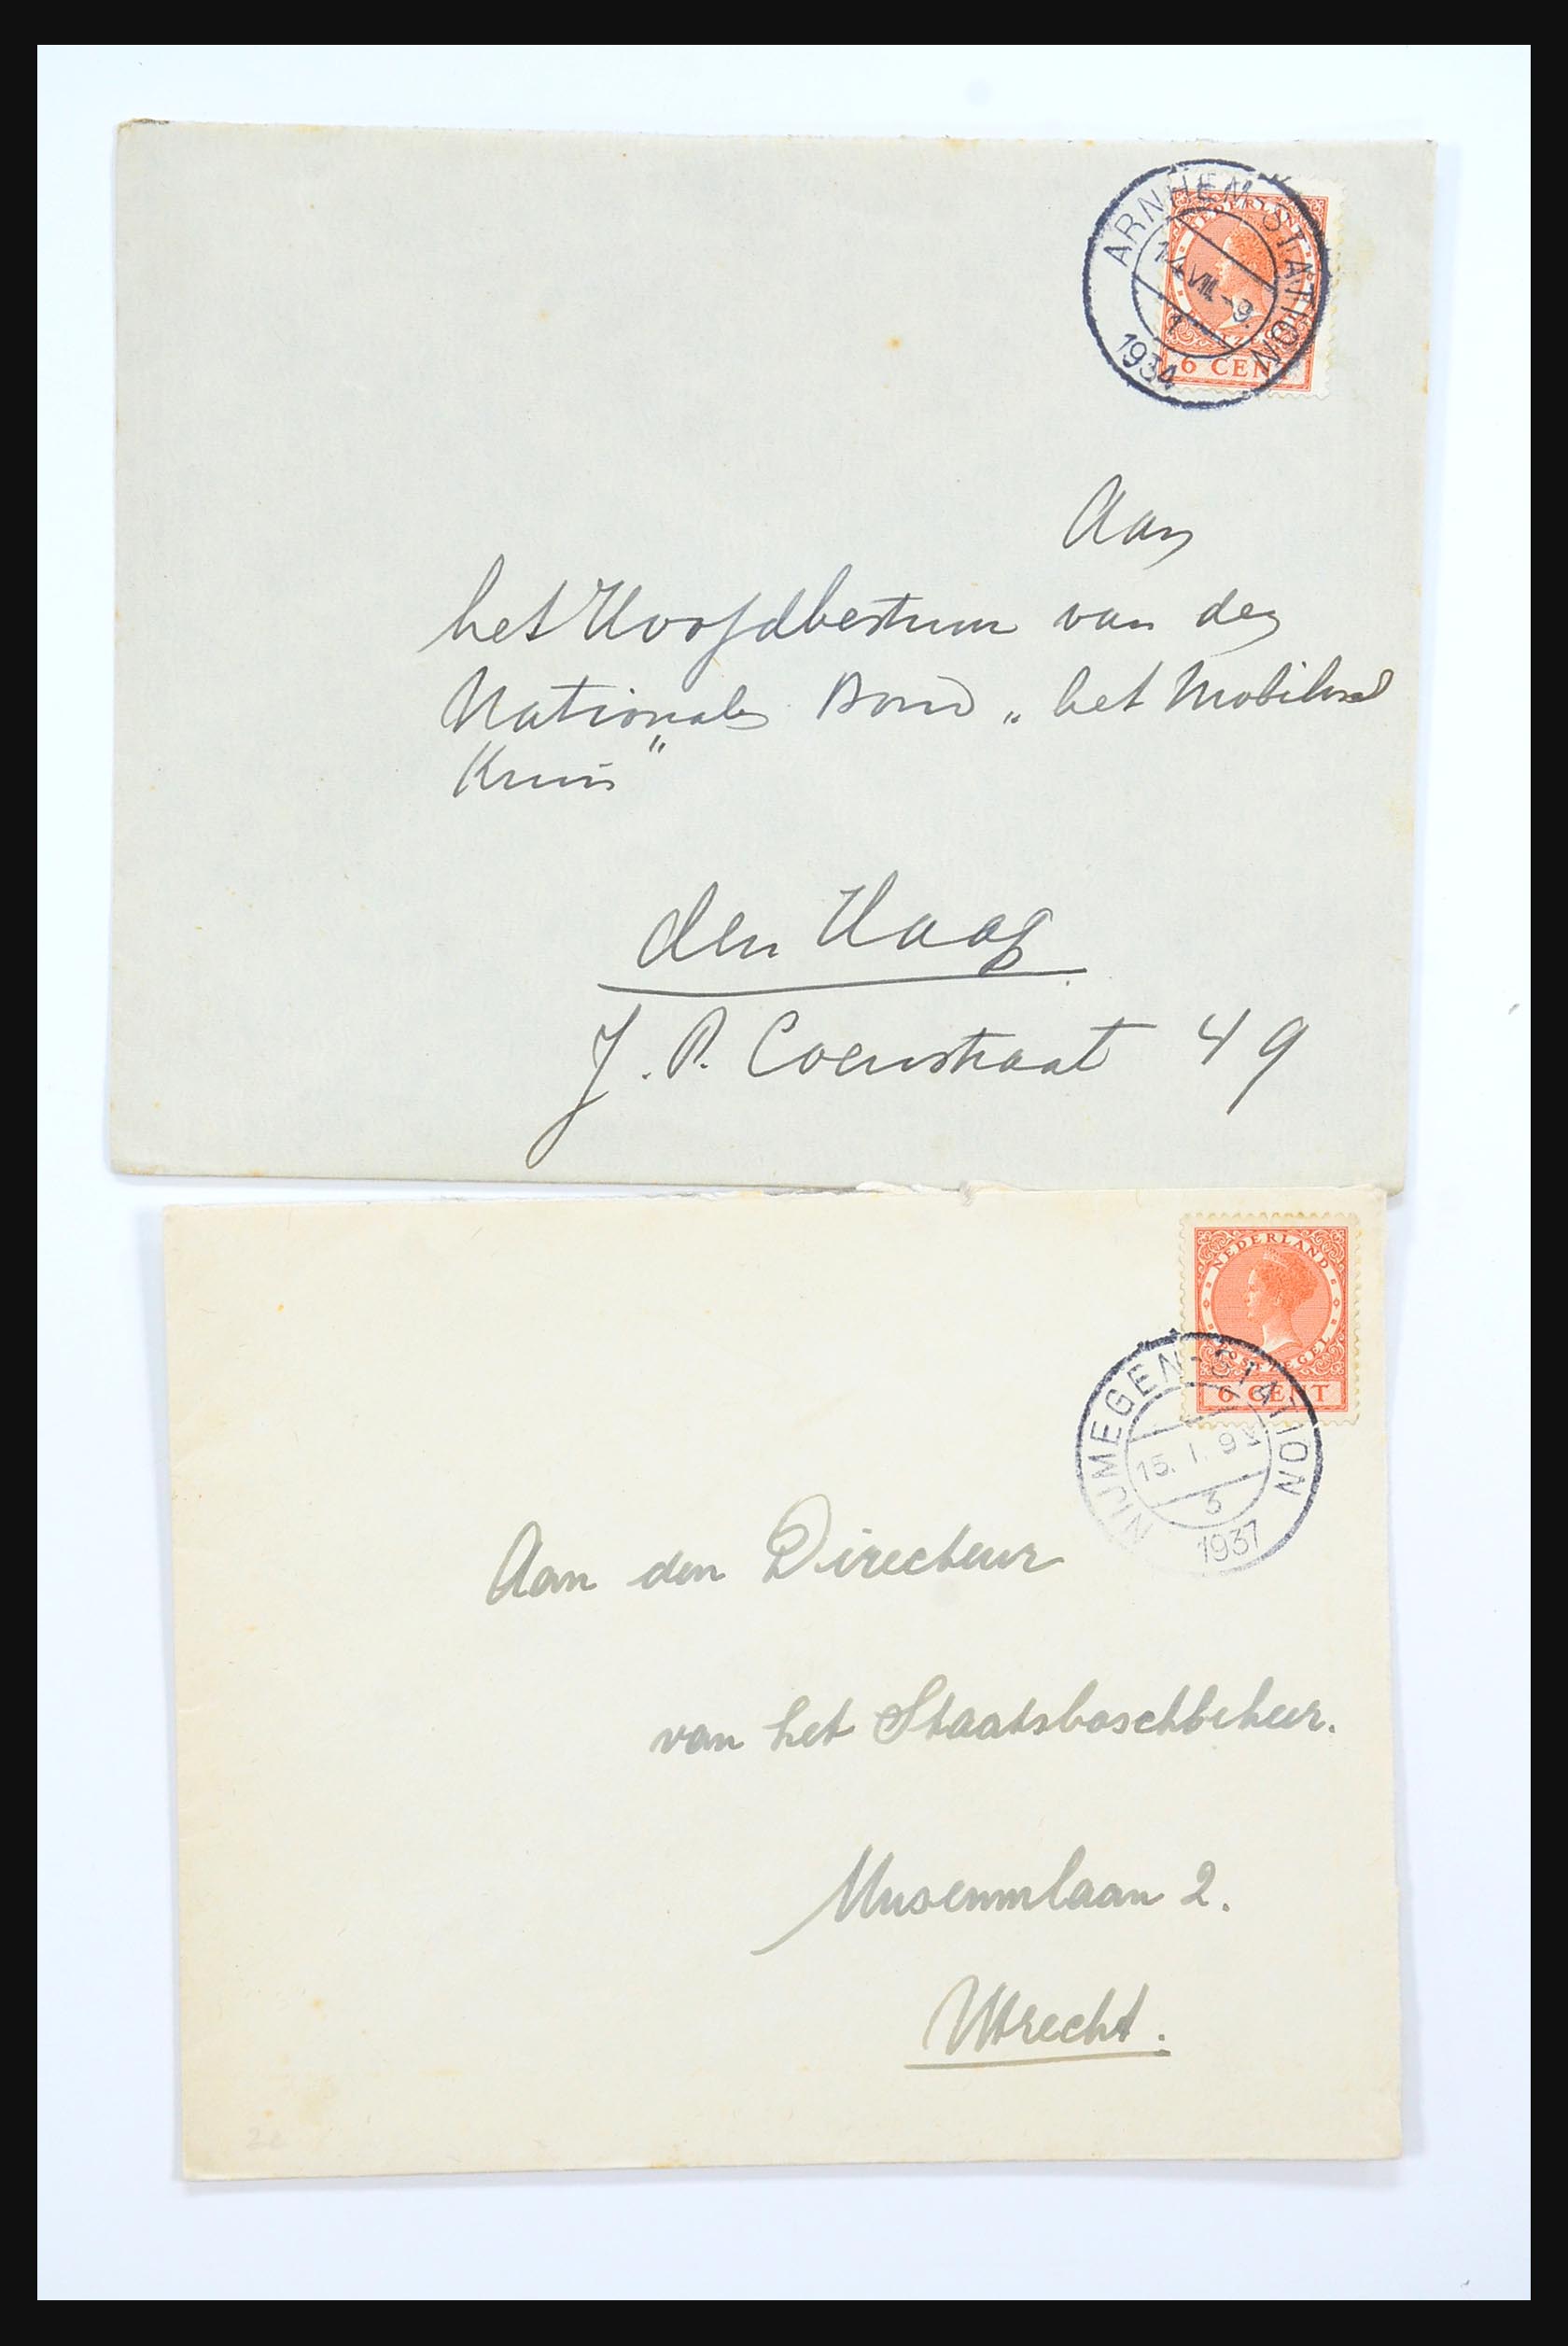 ARNHEM-STATION
VII.-9.
1
1934
6 CENT
Aan
het Hoofdbestuur van den
Nationale Bond „het Mobilisatie
Kruis"
den Haag
J. P. Coenstraat 49
NEDERLAND
POSTZEGEL
6 CENT
NIJMEGEN-STATION
15. I. 9
3
1937
Aan den Directeur
van het Staatsboschbeheer.
Museumlaan 2.
Utrecht.